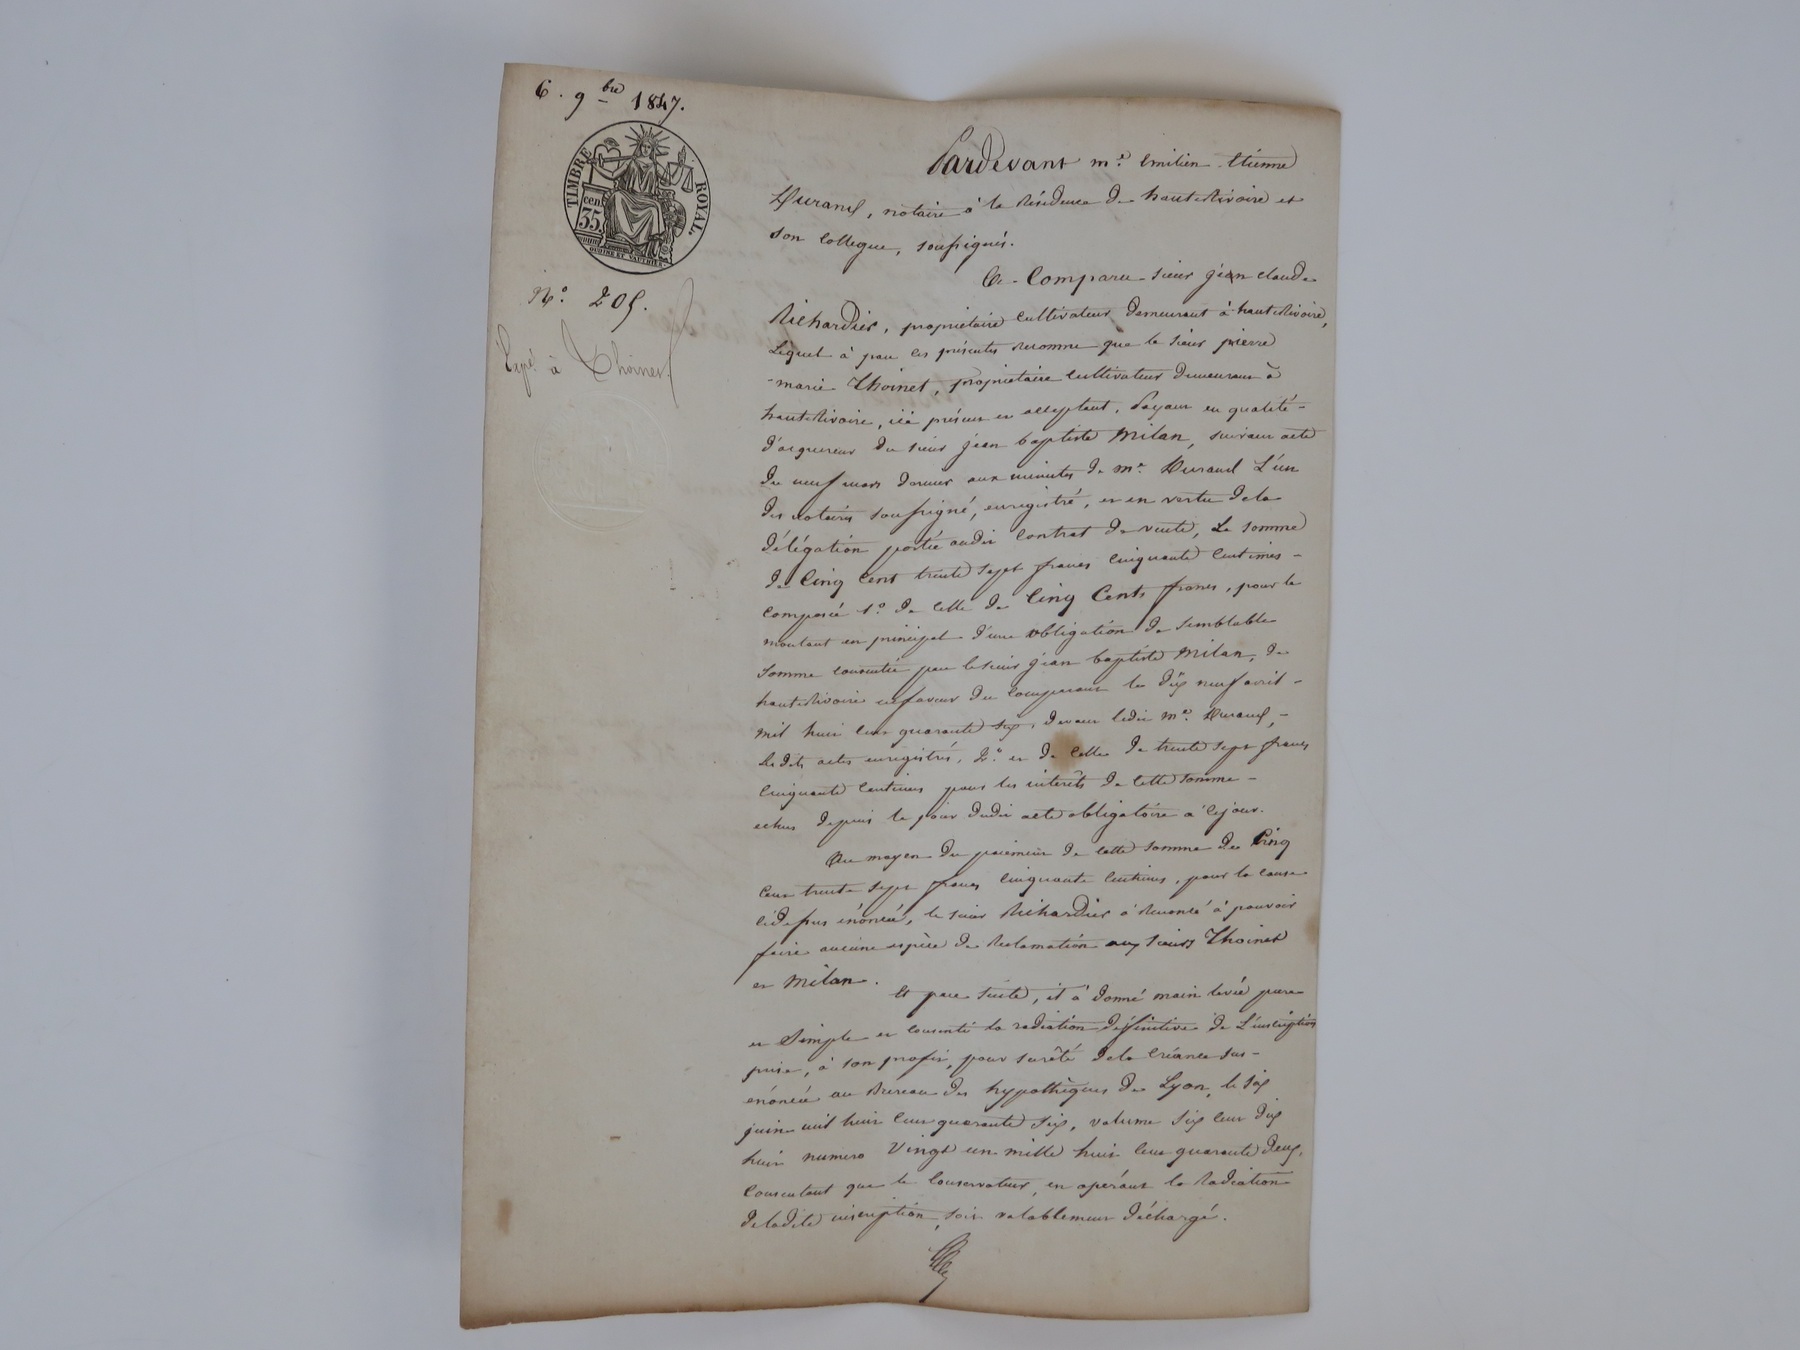 6. 9bre 1847.
TIMBRE ROYAL.
cen.
35
N.o 205.
Expé. à Thoinet
Pardevant m.e Emilien Etienne
Durand, notaire à la Résidence de hauteRivoire et
son collegue, soussignés.
A Comparu sieur jean claude
Richardier, propriétaire cultivateur demeurant à hauteRivoire,
Lequel à par ces présentes reconnu que le sieur pierre
-marie Thoinet, propriétaire cultivateur demeurant à
hauteRivoire, ici présent et acceptant, payant en qualité-
d'acquereur du sieur jean baptiste Milan, suivant acte
du neuf mars dernier aux minutes de m.e Durand L'un
des notaires soussigné, enregistré, et en vertu dela
délégation portée audit contrat de vente, La somme
de Cinq Cent trente sept francs cinquante centimes-
composée 1.o de celle de Cinq Cents francs, pour le
montant en principal d'une obligation de semblable
somme consentie par le sieur jean baptiste Milan, de
hauteRivoire en faveur du comparant le dix neuf avril-
mil huit cent quarante six, devant ledit m.e Durand,-
Lesdits actes enregistrés, 2.o et de celle de trente sept francs
cinquante centimes pour les interêts de cette somme-
echus depuis le jour dudit acte obligatoire à cejour.
Au moyen du paiement de cette somme de Cinq
cent trente sept francs cinquante centimes, pour la cause
cidessus énoncée, le sieur Richardier à Renoncé à pouvoir
faire aucune espèce de Reclamation aux sieurs Thoinet
et Milan.
Et par suite, il à donné main levée pure
et Simple et consenti la radiation définitive de L'inscription
prise, à son profit, pour sureté dela Créance sus-
énoncée au Bureau des hypothèques de Lyon, le six
juin mil huit cent quarante six, volume six cent dix
huit numero Vingt un mille huit cent quarante deux,
Consentant que le Conservateur, en opérant la Radiation
deladite inscription, soit valablement déchargé.